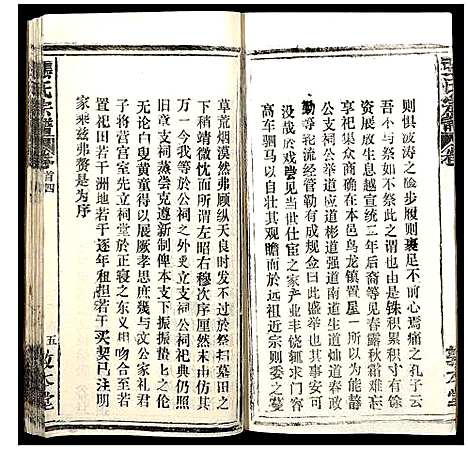 則俱波涛之險步履則裹足不前心焉痛之孔子云
吾不与祭如不祭此之謂也由是銖积累积寸
資展放生息越宣統二年后裔等見春露秋霜难忘
享祀渠众商确在本邑烏龙镇置屋一所以為能静
公支祠公举道应道彬道强道南道生道灿道春政
勤等轮流经管勒有成规佥曰此盛举也其事安可
没哉於戏尝见当世仕宦之家产业丰饶辄求门容
高车驷马以自壮其观瞻而于祖远宗则委之蔓
草荒烟漠然弗顾纵天良时发不过於祭扫墓田之
下稍靖微忱而所谓左昭右穆次序歷然未由
万一今我等於公祠之外更立支祠公祠祀典仍照
旧章支祠蒸尝克遵新制俾本支下旂
无论白叟黄童得以展厥孝思庶几与文公家礼君
子将营宫室先立祠堂於正寝之东义相
置祀田若干洲地若干逐年租担若干买契已註明
家乘兹弗赘是为序
龔氏宗譜
卷首四
五
敦本堂